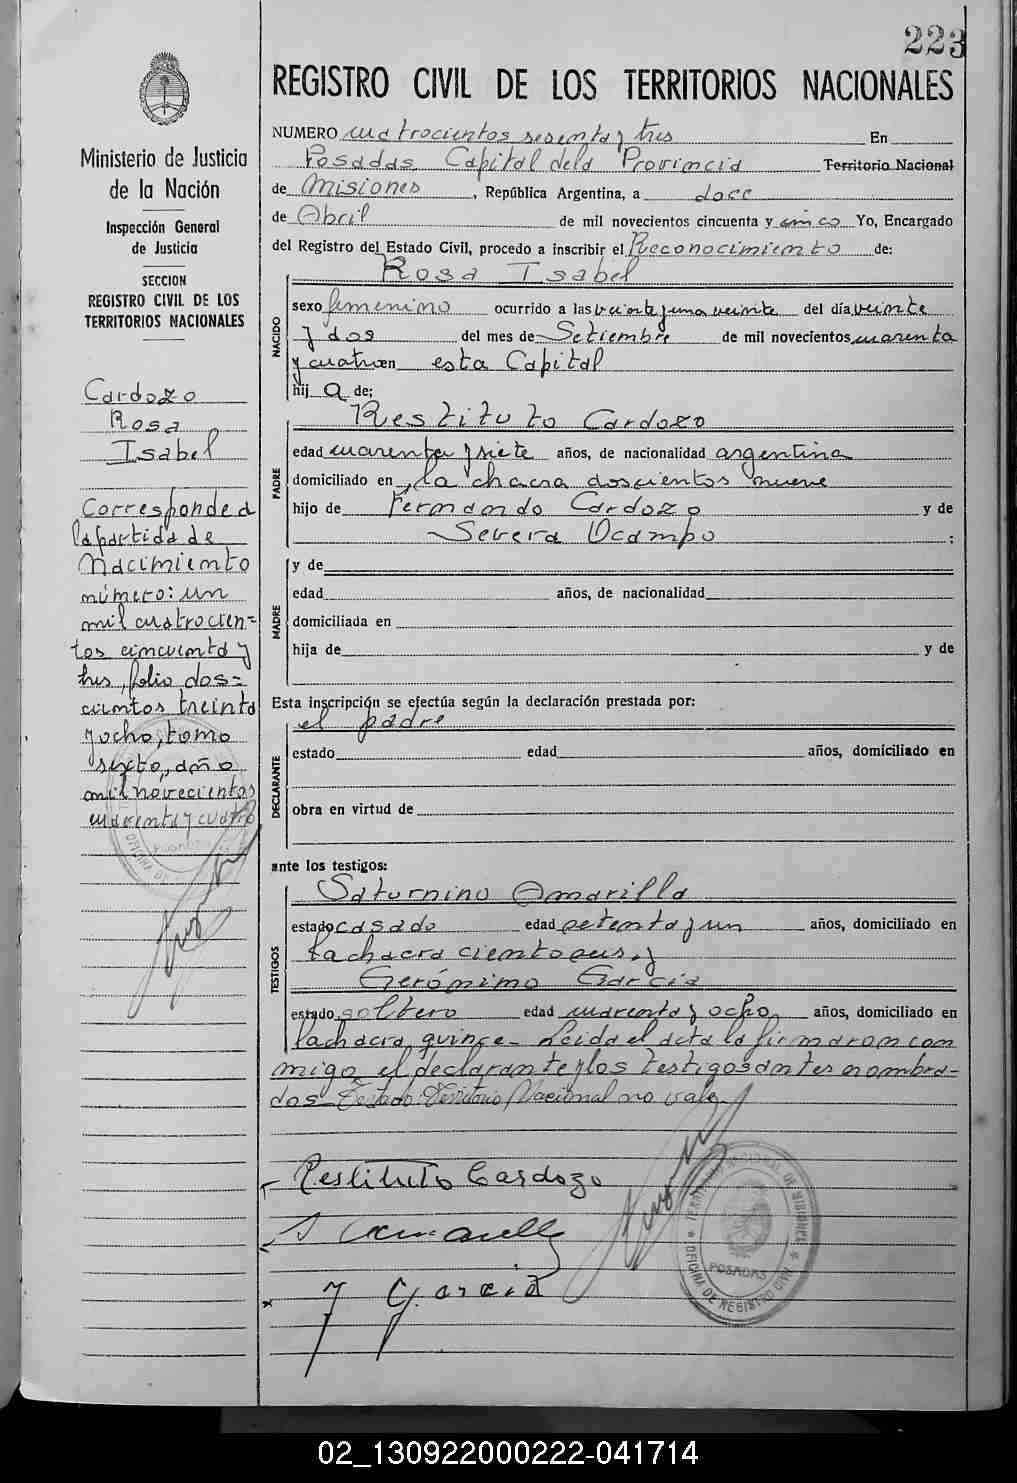 223
REGISTRO CIVIL DE LOS TERRITORIOS NACIONALES
Ministerio de Justicia
de la Nación
Inspección General
de Justicia
SECCION
REGISTRO CIVIL DE LOS
TERRITORIOS NACIONALES
Cardozo
Rosa
Isabel
Corresponde a
la partida de
Nacimiento
número: un
mil cuatrocien=
tos cincuenta y
tres, folio dos=
cientos treinta
y ocho, tomo
sexto, año
mil novecientos
cuarenta y cuatro
NUMERO cuatrocientos sesenta y tres En
Posadas, Capital de la Provincia Territorio Nacional
de Misiones, República Argentina, a doce
de Abril de mil novecientos cincuenta y cinco Yo, Encargado
del Registro del Estado Civil, procedo a inscribir el Reconocimiento de:
Rosa Isabel
NACIDO
sexo femenino ocurrido a las veinte y una veinte del día veinte
y dos del mes de Setiembre de mil novecientos cuarenta
y cuatro en esta Capital
hij a de;
PADRE
Restituto Cardozo
edad cuarenta y siete años, de nacionalidad argentina
domiciliado en la chacra doscientos nueve
hijo de Fernando Cardozo y de
Severa Ocampo ;
MADRE
y de
edad años, de nacionalidad
domiciliada en
hija de y de
Esta inscripción se efectúa según la declaración prestada por:
el padre
DECLARANTE
estado edad años, domiciliado en
obra en virtud de
ante los testigos:
TESTIGOS
Saturnino Amarilla
estado casado edad setenta y un años, domiciliado en
la chacra ciento seis, y
Gerónimo García
estado soltero edad cuarenta y ocho, años, domiciliado en
la chacra quince - Leida el acta la firmaron con
migo, el declarante y los testigos antes nombra-
dos - Testado: Territorio Nacional no vale
Restituto Cardozo
S Amarilla
J García
OFICINA DE REGISTRO CIVIL
POSADAS
02_130922000222-041714